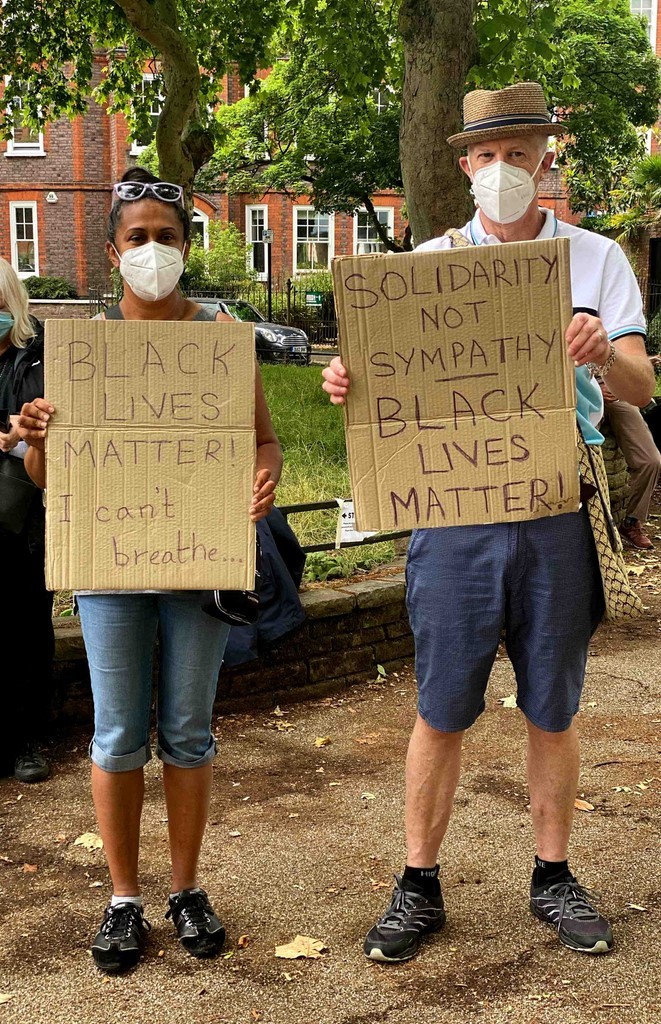 BLACK
LIVES
MATTER!
I can't
breathe...
SOLIDARITY
NOT
SYMPATHY
BLACK
LIVES
MATTER!